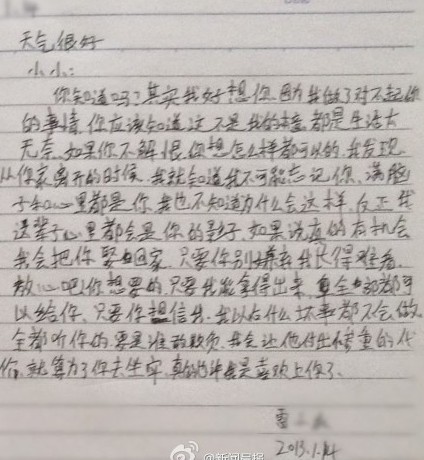 天气很好
小小：
你知道吗？其实我好想你，因为我做了对不起你
的事情，你应该知道这不是我的错，都是生活太
无奈，如果你不解恨，你想怎么样都可以的，我发现
从你家离开的时候，我就知道我不可能忘记你，满脑
子和心里都是你，我也不知道为什么会这样，反正我
这辈子心里都会是你的影子，如果说真的有机会
我会把你娶回家，只要你别嫌弃我长得难看，
放心吧！你想要的只要我能拿得出来，全部都可
以给你，只要你想信我，我以后什么坏事都不会做，
全都听你的，要是谁敢欺负，我会让他付出惨重的代
价，就算为了你去坐牢，真的喜欢上你了。
2013.1.14
@新闻晨报